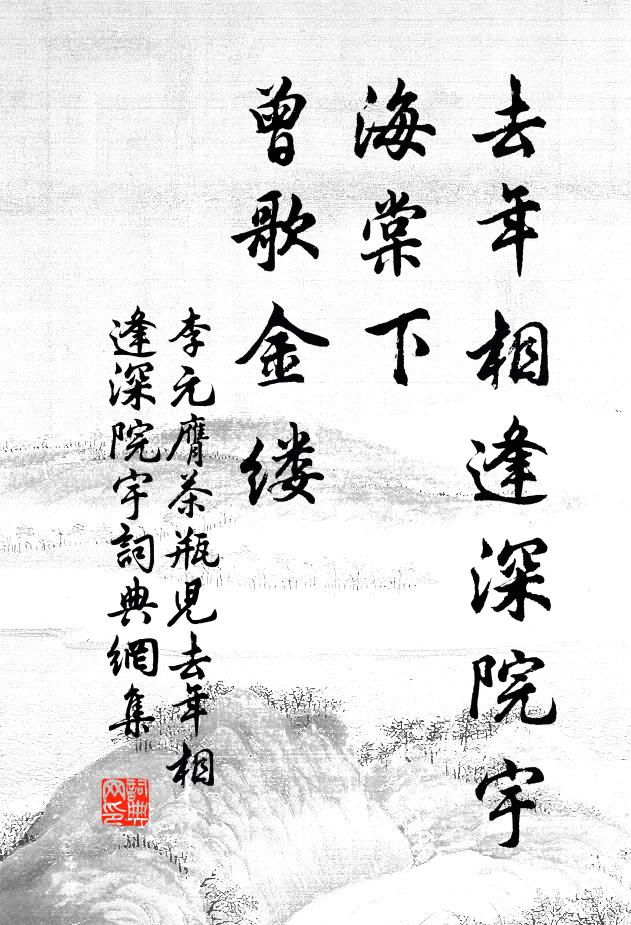 去年相逢深院宇
海棠下
曾歌金缕
李元膺茶瓶児去年相
逢深院宇詞典網集
詞典
网印